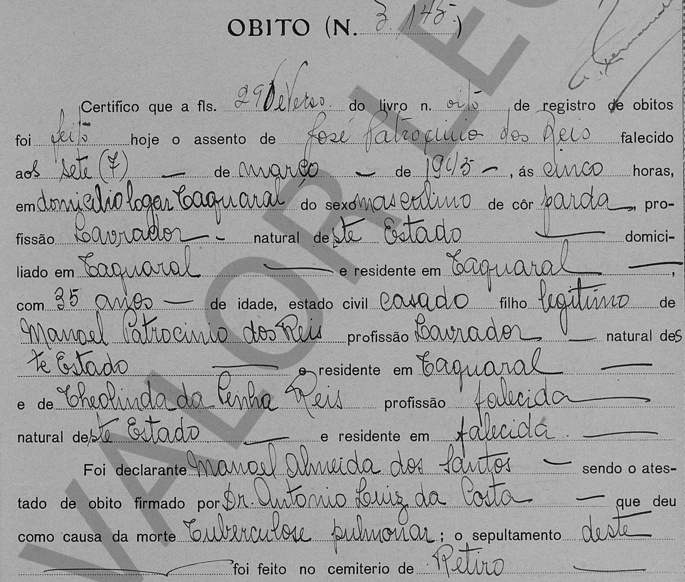 OBITO (N. 3.145)
Certifico que a fls. 29 Verso do livro n. oito de registro de obitos
foi feito hoje o assento de José Patrocinio dos Reis falecido
aos sete (7) — de março — de 1945 —, ás cinco horas,
em domicilio logar Taquaral do sexo masculino de côr parda —, pro-
fissão Lavrador — natural deste Estado — domici-
liado em Taquaral — e residente em Taquaral —,
com 35 anos — de idade, estado civil casado filho legitimo de
Manoel Patrocinio dos Reis profissão Lavrador — natural des
te Estado — e residente em Taquaral —
e de Theolinda da Penha Reis profissão falecida —
natural deste Estado — e residente em falecida. —
Foi declarante Manoel Almeida dos Santos — sendo o ates-
tado de obito firmado por Dr. Antonio Luiz da Costa — que deu
como causa da morte Tuberculose pulmonar; o sepultamento deste
— foi feito no cemiterio de Retiro —
VALOR LEG